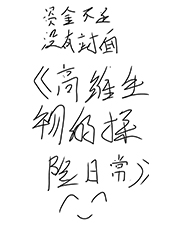 资金不足
没有封面
《高维生
物的探
险日常》